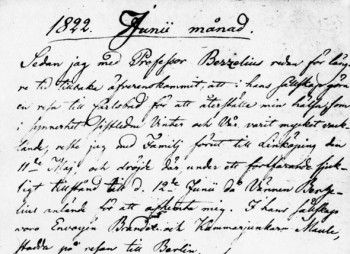 1822. Junii månad.
Sedan jag med Professor Berzelius redan för läng-
re tid tilbaka öfverenskommit, att i hans sällskap göra
en resa till Carlsbad för att återställa min hälsa, som
i synnerhet sistleden Vinter och Vår varit mycket vack-
lande, reste jag med Familj förut till Linköping den
11te Maj, och dröjde där under ett fortfarande sjuk-
ligt tillstånd till d. 12te Junii då Vännen Berze-
lius anlände för att afhemta mig. I hans sällskap
voro Envoyén Brandel och Kammarjunkar Maule,
stadda på resan till Berlin.